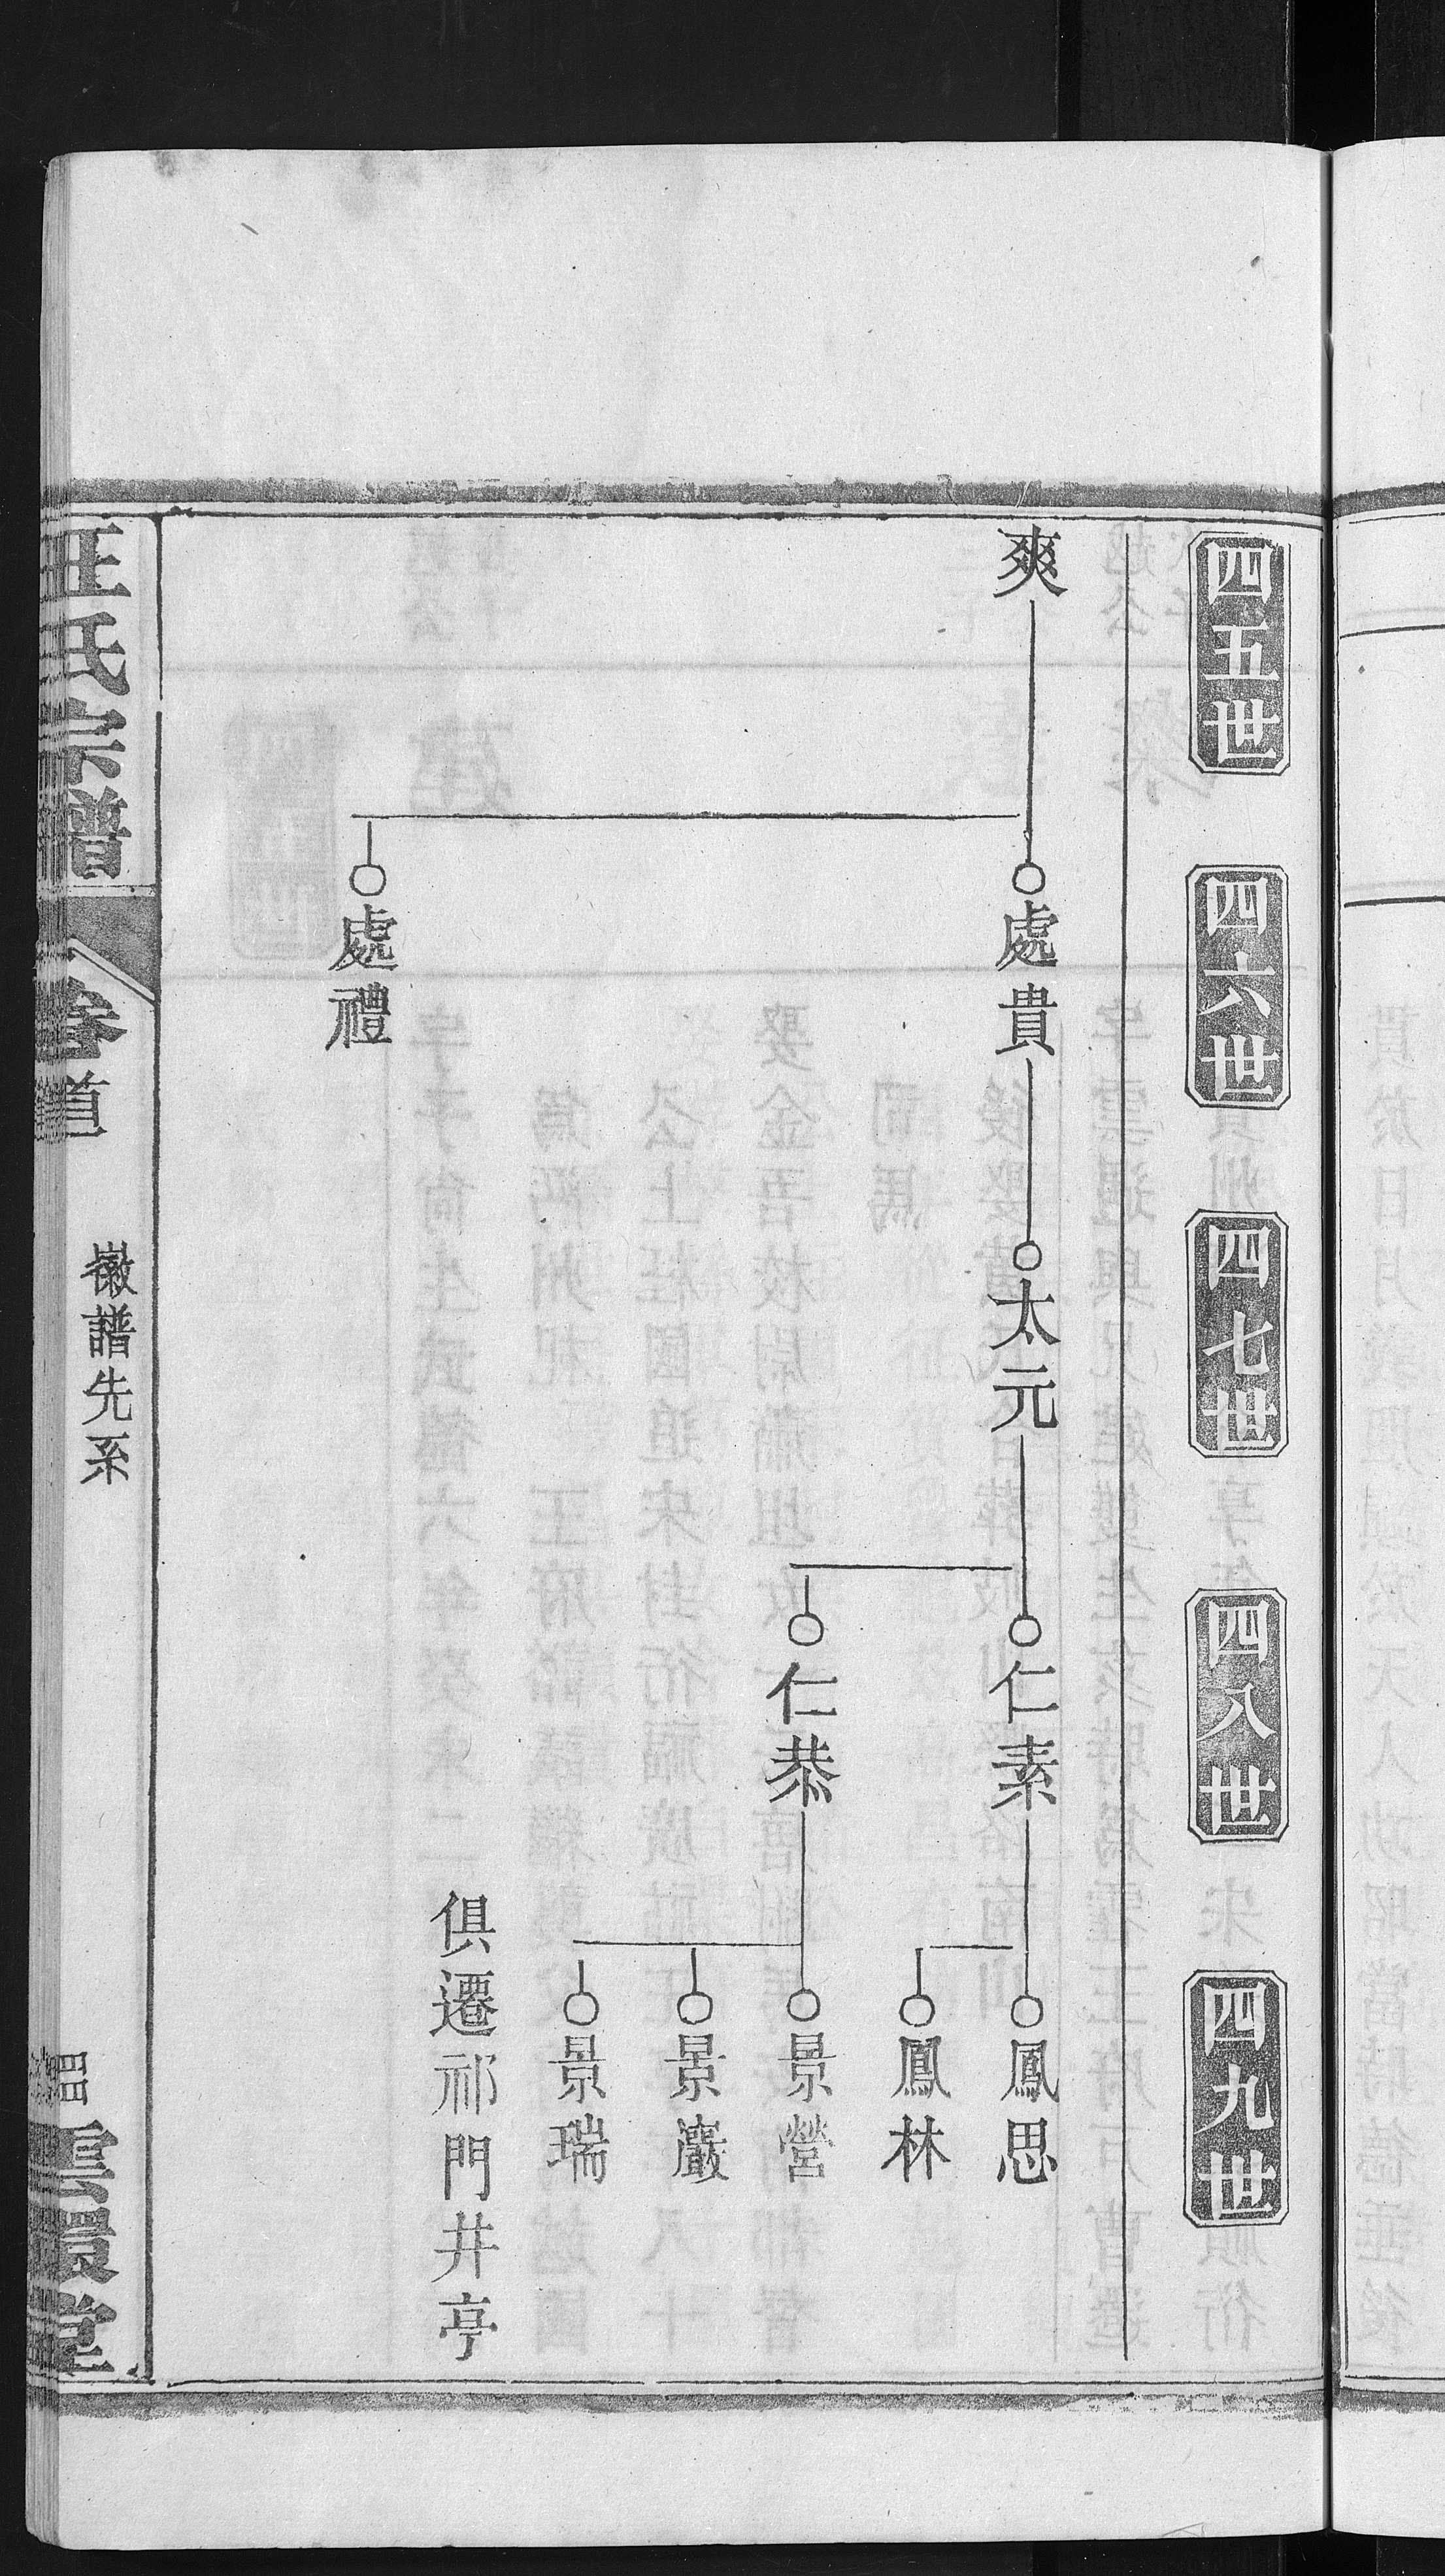 四五世
四六世
四七世
四八世
四九世
爽
處貴
太元
仁素
鳳思
鳳林
仁恭
景營
景巖
景瑞
俱遷祁門井亭
處禮
汪氏宗譜
卷首
徽譜先系
四四
雲環堂